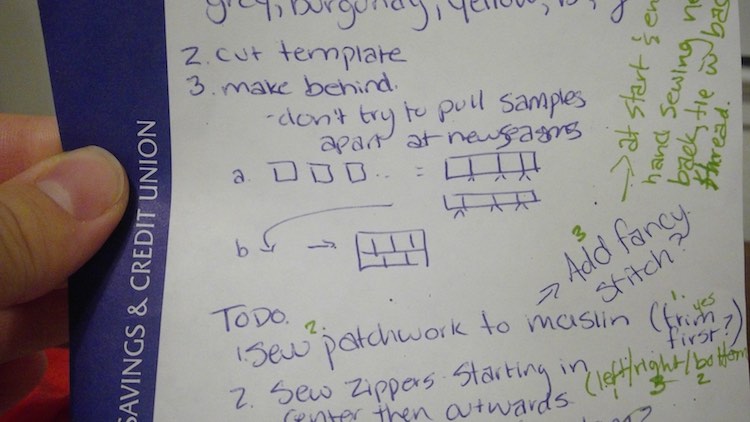 grey, burgundy, yellow,
2. cut template
3. make behind.
- don't try to pull samples
apart at new seams
a. =
b →
→ at start & en
hand sewing ne
back, tie w/ bac
thread.
3
Add fancy
stitch?
TODO.
1. Sew patchwork to muslin (trim
first?)
2
1. yes
2. Sew zippers starting in
center then outwards
(left/right/bottom
3 2
SAVINGS & CREDIT UNION